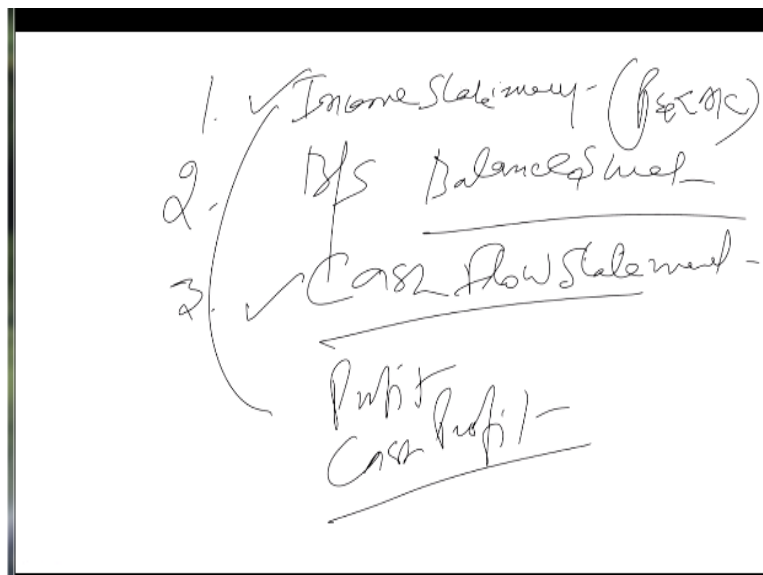 1. ✓ Income Statement - (P&L A/C)
2. B/S Balance Sheet
3. ✓ Cash Flow Statement -
Profit
Cash Profit -